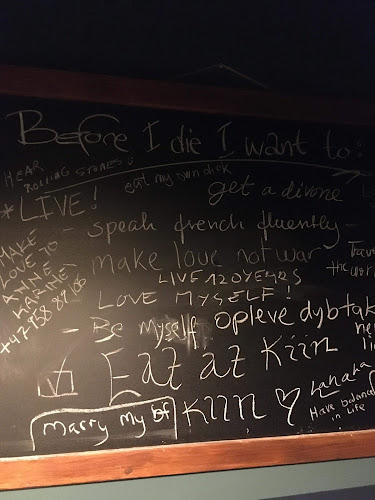 Before I die I want to:
HEAR
ROLLING STONES!
eat my own dick
get a divorce
* LIVE!
- speak french fluently -
MAKE
LOVE TO
ANNE
KARINE
- make love not war
Travel
the world
LIVE 120 YEARS
- LOVE MYSELF!
- Be Myself
opleve dybtak
Eat at Kiin
Kiin ♡
Marry My bf
Have balance
in Life